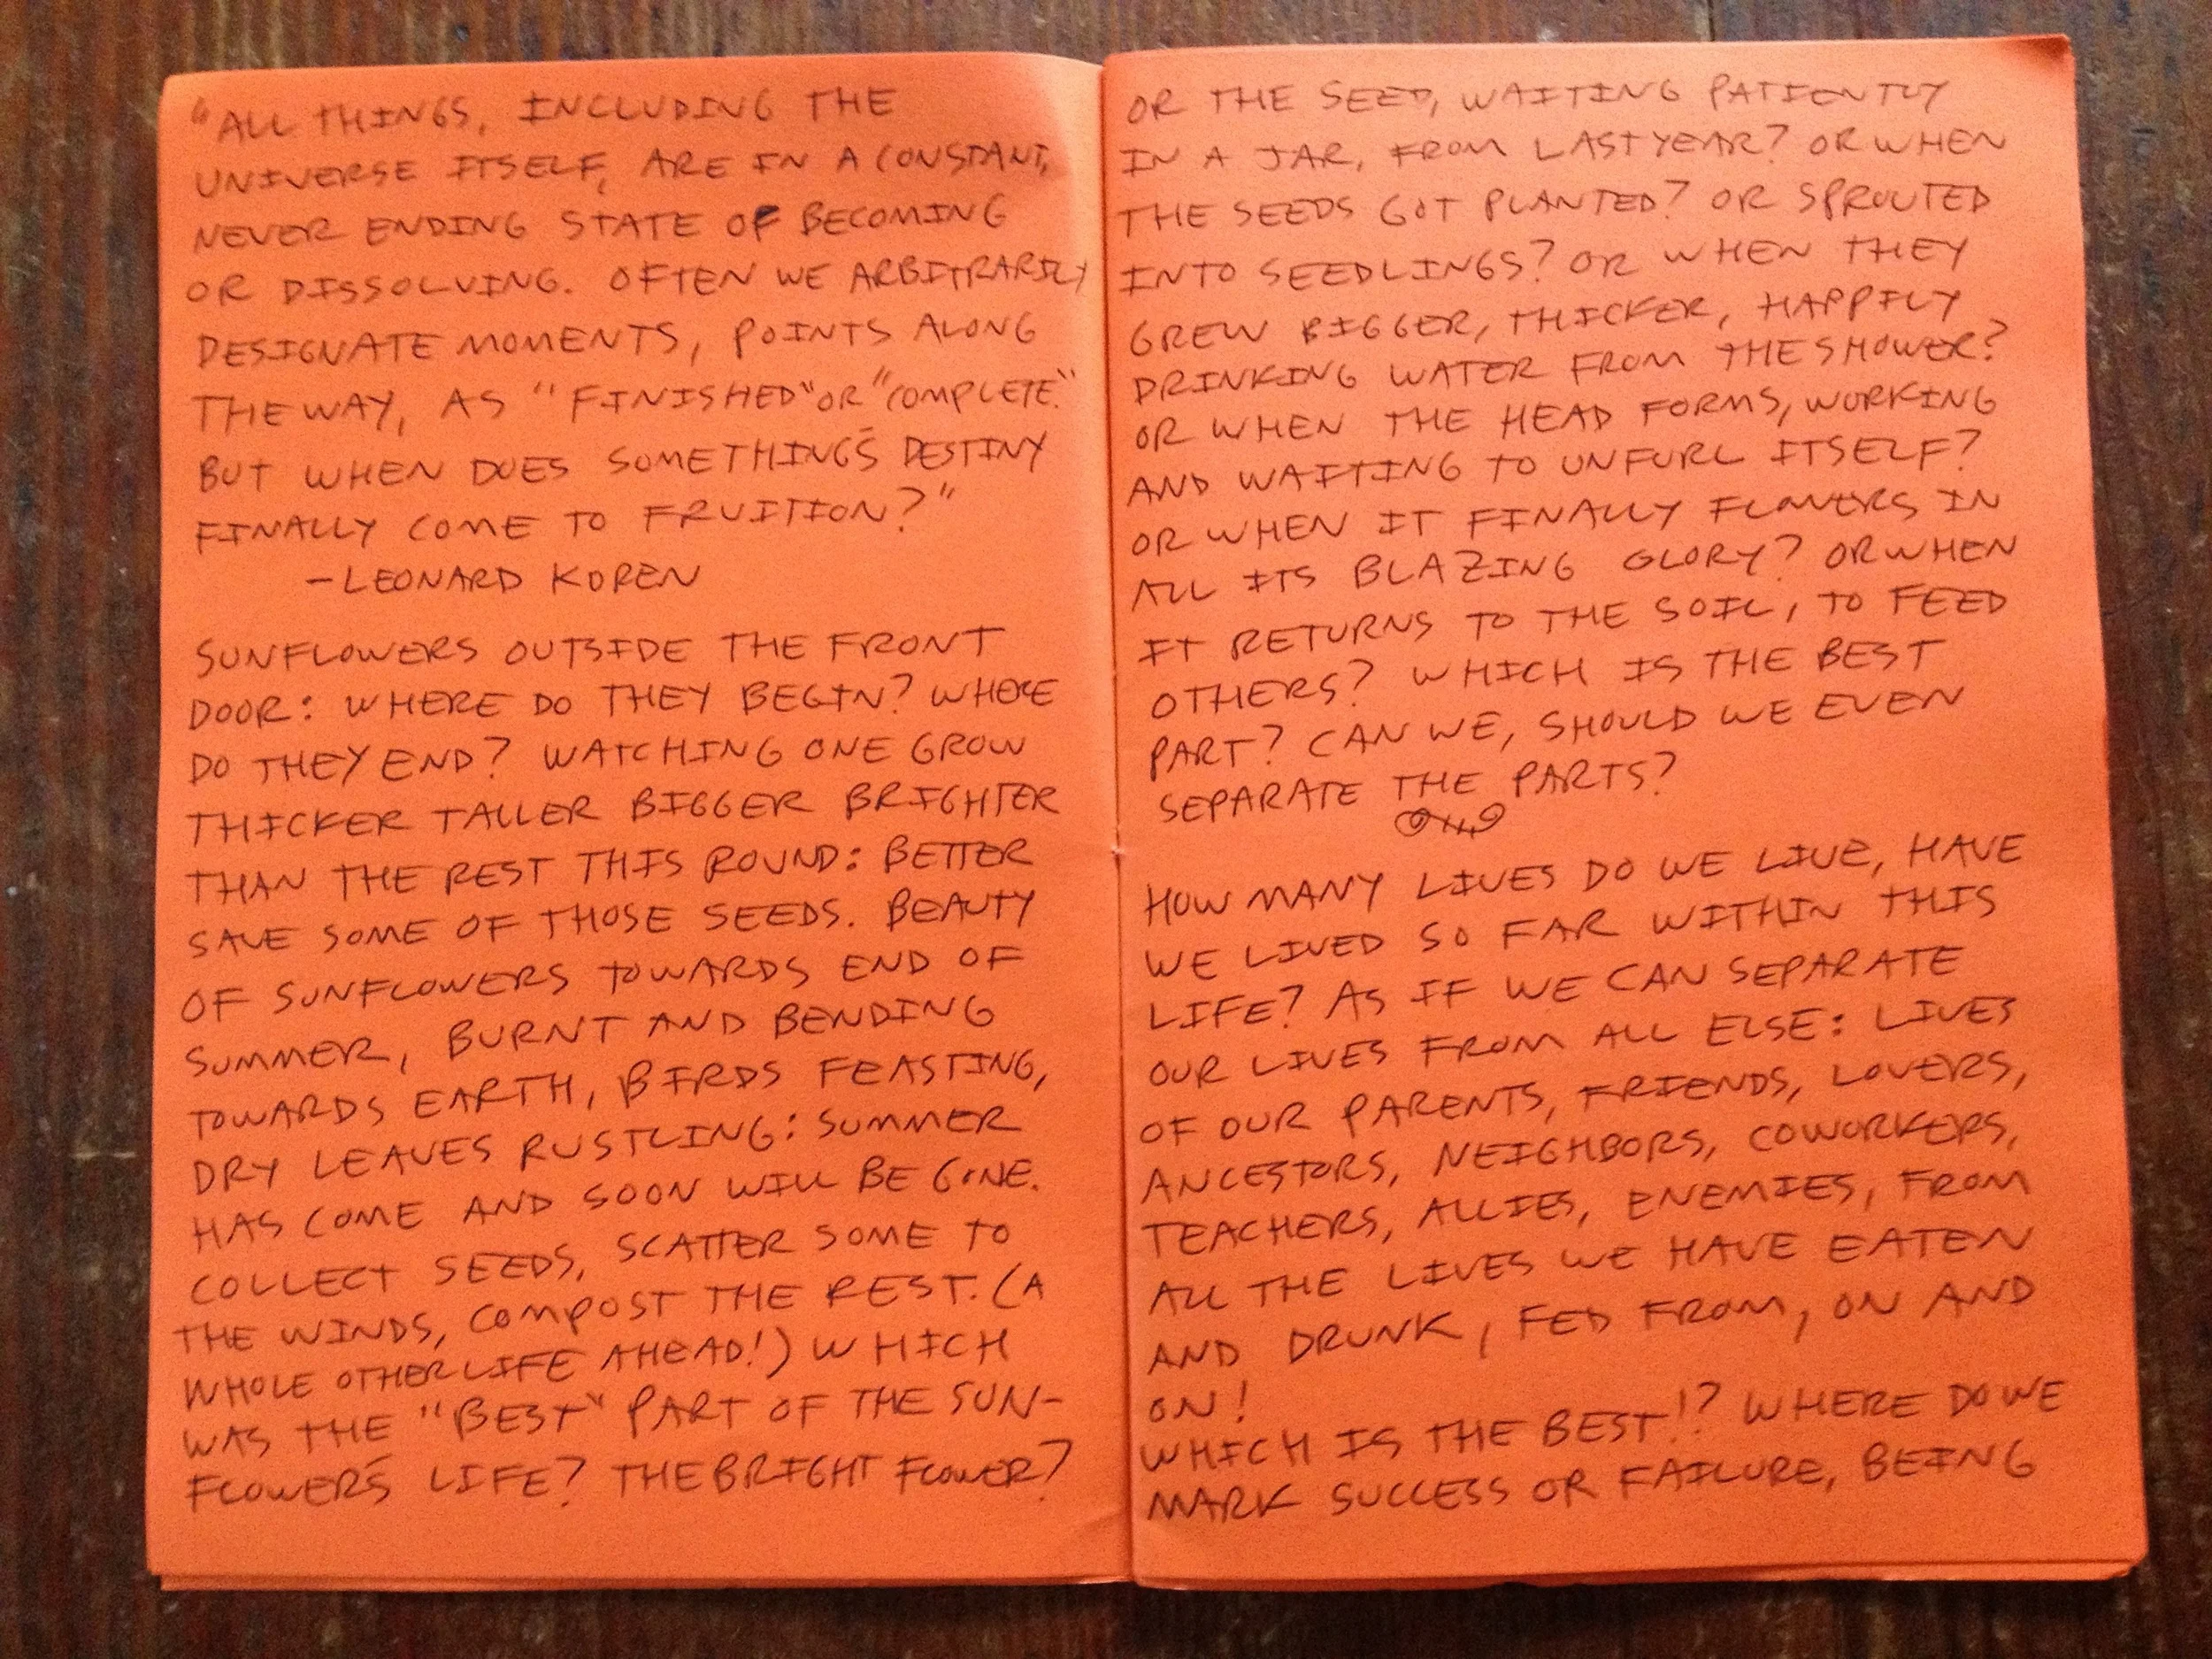 "ALL THINGS, INCLUDING THE
UNIVERSE ITSELF, ARE IN A CONSTANT,
NEVER ENDING STATE OF BECOMING
OR DISSOLVING. OFTEN WE ARBITRARILY
DESIGNATE MOMENTS, POINTS ALONG
THE WAY, AS "FINISHED" OR "COMPLETE."
BUT WHEN DOES SOMETHING'S DESTINY
FINALLY COME TO FRUITION?"
-LEONARD KOREN
SUNFLOWERS OUTSIDE THE FRONT
DOOR: WHERE DO THEY BEGIN? WHERE
DO THEY END? WATCHING ONE GROW
THICKER TALLER BIGGER BRIGHTER
THAN THE REST THIS ROUND: BETTER
SAVE SOME OF THOSE SEEDS. BEAUTY
OF SUNFLOWERS TOWARDS END OF
SUMMER, BURNT AND BENDING
TOWARDS EARTH, BIRDS FEASTING,
DRY LEAVES RUSTLING: SUMMER
HAS COME AND SOON WILL BE GONE.
COLLECT SEEDS, SCATTER SOME TO
THE WINDS, COMPOST THE REST. (A
WHOLE OTHER LIFE AHEAD!) WHICH
WAS THE "BEST" PART OF THE SUN-
FLOWER'S LIFE? THE BRIGHT FLOWER?
OR THE SEED, WAITING PATIENTLY
IN A JAR, FROM LAST YEAR? OR WHEN
THE SEEDS GOT PLANTED? OR SPROUTED
INTO SEEDLINGS? OR WHEN THEY
GREW BIGGER, THICKER, HAPPILY
DRINKING WATER FROM THE SHOWER?
OR WHEN THE HEAD FORMS, WORKING
AND WAITING TO UNFURL ITSELF?
OR WHEN IT FINALLY FLOWERS IN
ALL ITS BLAZING GLORY? OR WHEN
IT RETURNS TO THE SOIL, TO FEED
OTHERS? WHICH IS THE BEST
PART? CAN WE, SHOULD WE EVEN
SEPARATE THE PARTS?
HOW MANY LIVES DO WE LIVE, HAVE
WE LIVED SO FAR WITHIN THIS
LIFE? AS IF WE CAN SEPARATE
OUR LIVES FROM ALL ELSE: LIVES
OF OUR PARENTS, FRIENDS, LOVERS,
ANCESTORS, NEIGHBORS, COWORKERS,
TEACHERS, ALLIES, ENEMIES, FROM
ALL THE LIVES WE HAVE EATEN
AND DRUNK, FED FROM, ON AND
ON!
WHICH IS THE BEST!? WHERE DO WE
MARK SUCCESS OR FAILURE, BEING